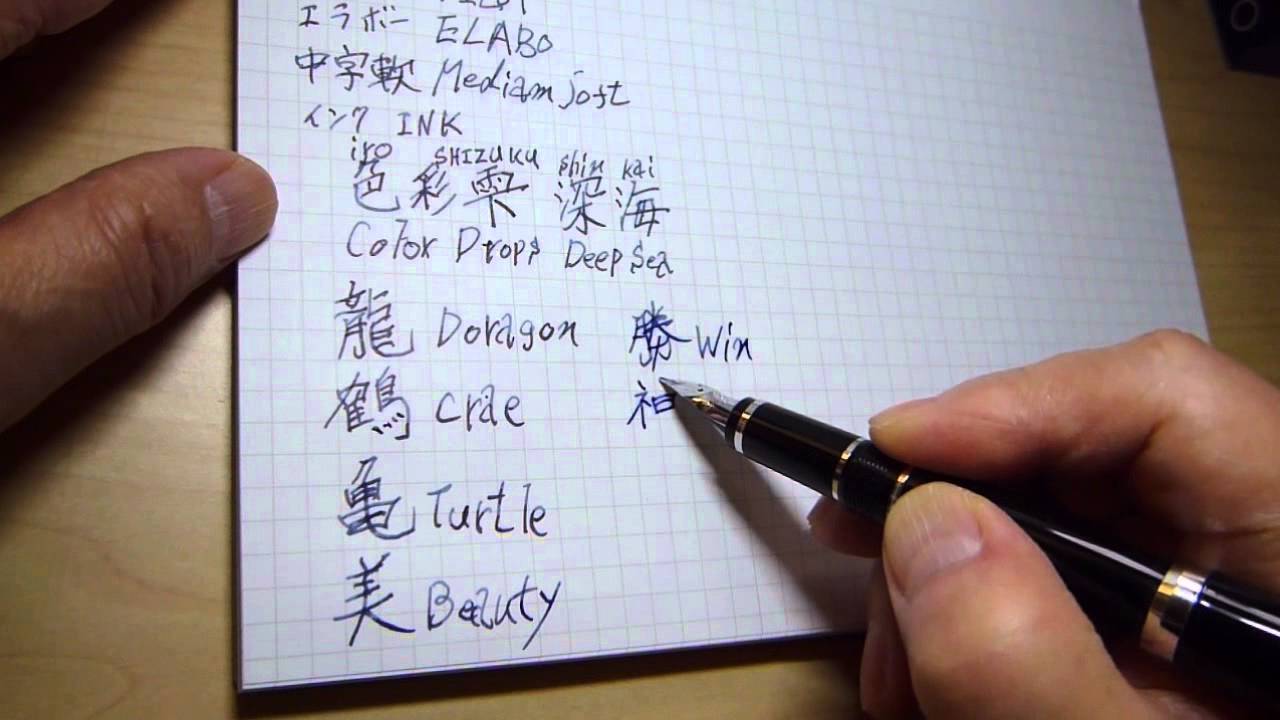 エラボー ELABO
中字軟 Mediam soft
インク INK
iro SHIZUKU shin kai
色彩雫 深海
Color Drops Deep Sea
龍 Doragon 勝 Win
鶴 crae
亀 Turtle
美 Beauty